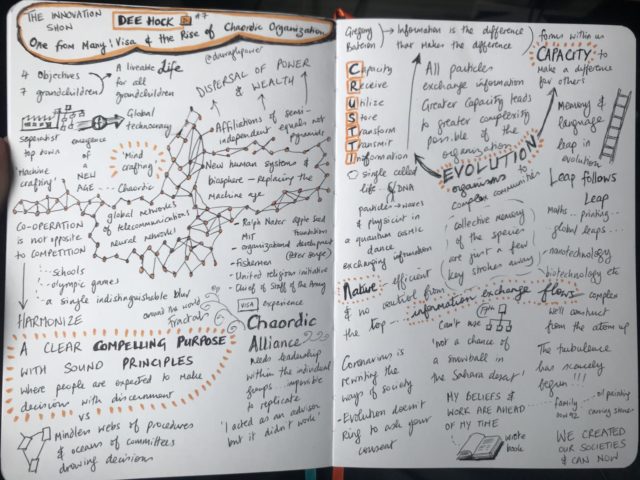 THE INNOVATION
SHOW
DEE HOCK
#7
One from Many: Visa & the Rise of Chaordic Organization
4 Objectives
7 grandchildren
A liveable Life
for all
grandchildren
DISPERSAL OF POWER
& WEALTH
Global
technocracy
Separatist
top down
'machine
crafting'
emergence
of
a
NEW
AGE... Chaordic
'Mind
crafting'
Affiliations of semi-
independent equals not
pyramids
New human systems &
biosphere - replacing the
Machine age
global networks
of telecommunications
neural networks
CO-OPERATION
is not opposite
to COMPETITION
...schools
olympic games
a single indistinguishable blur
HARMONIZE
around the world
fractals
Ralph Nader
apple seed
foundation
MIT
- organizational development
(Peter Senge)
- Fisherman
- United religions initiative
- Chief of Staff of the Army
VISA experience
A CLEAR COMPELLING PURPOSE
WITH SOUND PRINCIPLES
where people are expected to make
decisions with discernment
VS
Mindless webs of procedures
& oceans of committees
drawing decisions
Chaordic
Alliance
needs leadership
within the individual
groups... impossible
to replicate
'I acted as an advisor
but it didn't work'
Gregory
Bateson
Information is the difference
that makes the difference
forms within us
CAPACITY to
make a difference
for others
Capacity
Receive
Utilize
Store
Transform
Transmit
Information
All particles
exchange information
Greater Capacity leads
to greater complexity
possible of the
organization
EVOLUTION
organisms to
complex communities
Memory &
language
leap in
evolution
Leap follows
Leap
maths... printing...
global leaps...
nanotechnology
biotechnology etc
single celled
life - DNA
particles → waves
& physicist in
a quantum cosmic
dance
exchanging information
collective memory
of the species
are just a few
key strokes away
Nature - efficient
& no control from
the top...
information exchange flows
complex
we'll construct
from the atom up
Can't use
'not a chance of
a snowball in
the Sahara desert'
The turbulence
has scarcely
begun!!!
Coronavirus is
rewriting the
ways of society
- Evolution doesn't
ring to ask your
consent
MY BELIEFS &
WORK ARE AHEAD
OF MY TIME
wrote
book
family
oil painting
carving stones
WE CREATED
OUR SOCIETIES
& CAN NOW